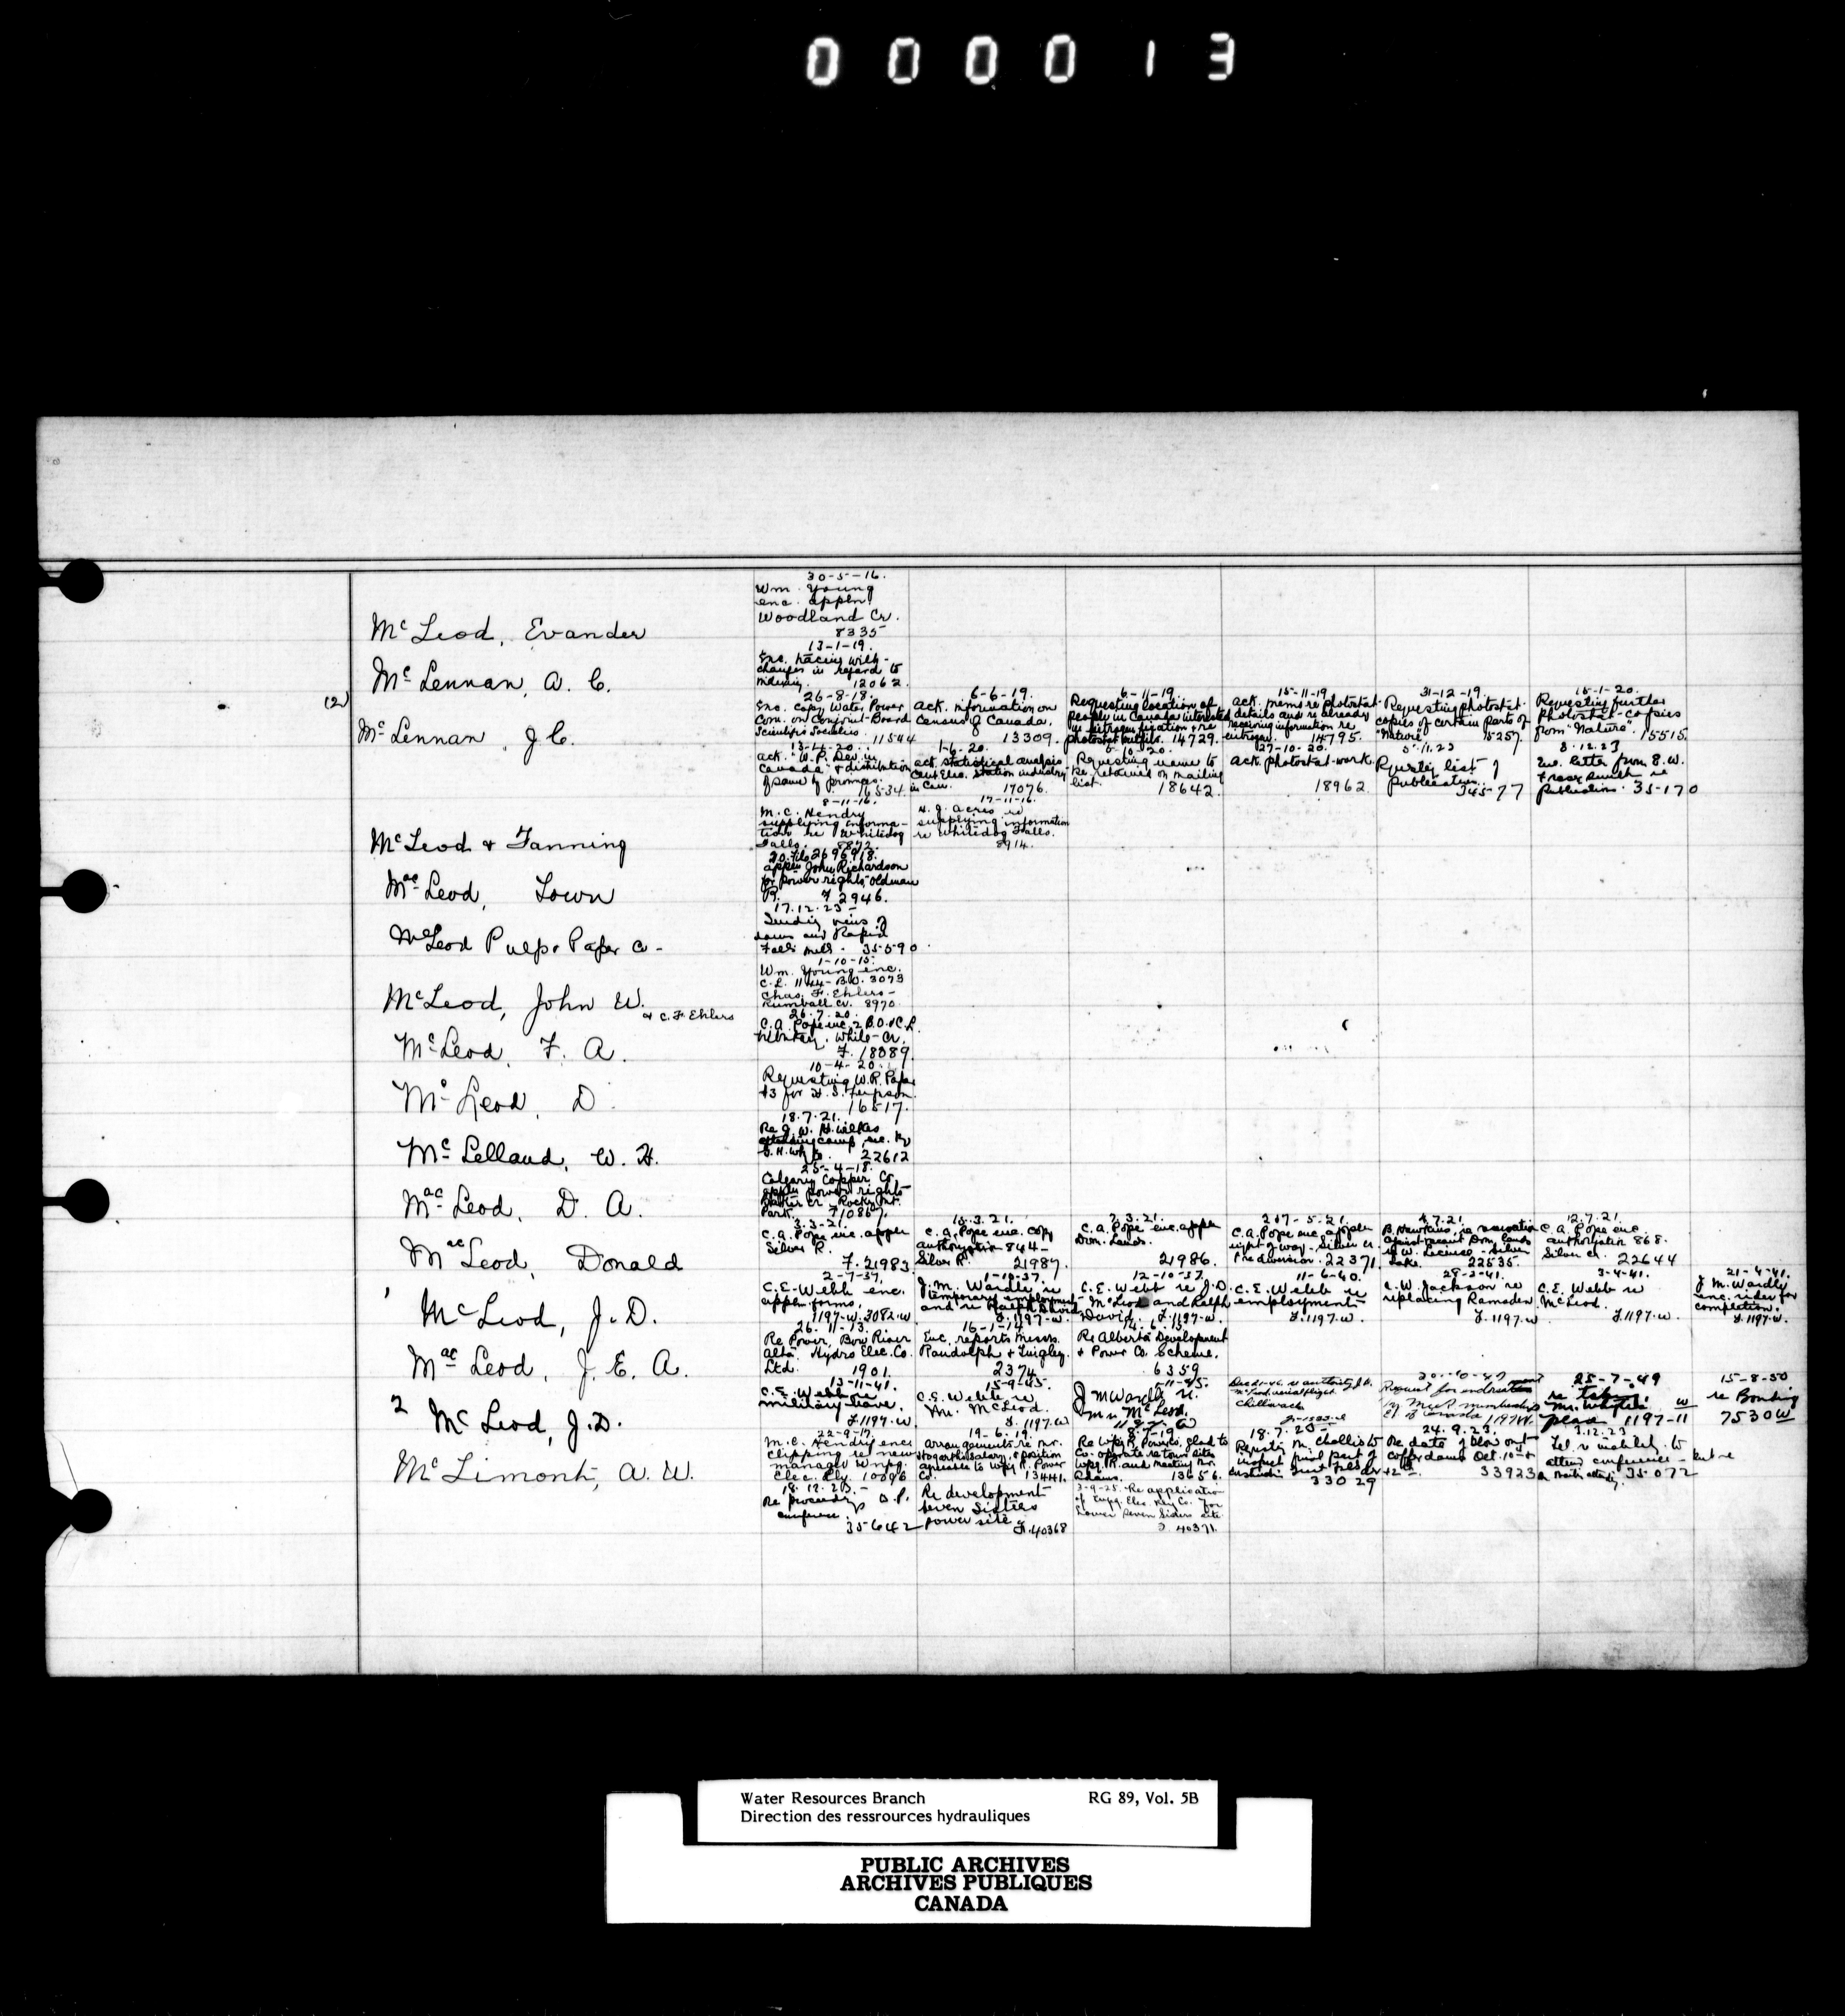 000013
30-5-16.
Wm. Young
enc. appln
Woodland Cr.
McLeod, Evander
8335
13-1-19.
Enc. tracing with
changes in regard to
12062.
McLennan, A. C.
(2)
McLennan, J. C.
26-8-18.
Enc. copy Water Power
Com. on Conjoint Board
Scientific Societies. 11544
6-6-19.
Ack. information on
Census of Canada.
13309.
6-11-19.
Requesting location of
people in Canada interested
in nitrogen fixation & re
photostat outfits. 14729.
15-11-19
Ack. memo re photostat
details and re already
receiving information re
nitrogen. 14795.
31-12-19.
Requesting photostat
copies of certain parts of
"Nature" 15257.
15-1-20.
Requesting further
photostat copies
from "Nature". 15515.
13-4-20.
Ack. "W. P. Dev. in
Canada" & distribution
of same by provinces.
16534.
1-6-20.
Ack. statistical analysis
Cent. Elec. Station industry
in Can. 17076.
5-10-20.
Requesting name to
be retained on mailing
list. 18642.
27-10-20.
Ack. photostat work.
18962
5.11.23
list of
Publication
34577
8.12.23
Enc. letter from S.W.
re
publications. 35170
McLeod & Fanning
8-11-16.
M.C. Hendry
supplying informa-
tion re Whitedog
Falls. 8872.
17-11-16.
H. G. Acres re
supplying information
re Whitedog Falls.
8914.
MacLeod, Town
appln John Richardson
for power rights, Oldman
R. F 2946.
McLeod Pulp & Paper Co.
17.12.23
Sending views of
dams and Rapid
Falls mill. 35590.
McLeod, John W.
& C. F. Ehlers
1-10-15.
Wm. Young enc.
C.L. 1144 - B.O. 3073
Chas. F. Ehlers -
Rumball Cr. 8970.
McLeod, F. A.
26.7.20.
C.A. Pope enc. 2 B.O. & C.L.
White Cr.
F. 18089.
McLeod, D.
10-4-20.
Requesting W.R. Paper
#3 for
16517.
McLelland, W. H.
18.7.21.
Re J. W. H. Wilkes
attending camp, enc. by
22612
MacLeod, D. A.
25-4-18.
Calgary Copper Co.
appln power rights
Cr. Rocky Mt.
Park. 71086
MacLeod, Donald
3-3-21.
C.A. Pope enc. appln
Silver R.
F. 21983.
15.3.21.
C.A. Pope enc. copy
authorization 844 -
Silver R. 21987.
3.21.
C.A. Pope enc. appln
Dom. Lands.
21986.
5.21.
C.A. Pope enc. appln
right of way - Silver Cr.
& re diversion. 22371.
7.21.
B. Hawkins re reservation
against vacant Dom. lands
License - Silver
Lake. 22535.
12.7.21.
C.A. Pope enc.
authorization 868.
Silver Cr. 22644
1 McLeod, J. D.
2-7-37.
C.E. Webb enc.
appln. forms.
1197-W. 3082-W
1-10-37.
J.M. Wardle re
temporary employment
and re Ralph David.
F. 1197-W.
12-10-37.
C.E. Webb re J.D.
McLeod and Ralph
David. F. 1197-W.
11-6-40.
C.E. Webb re
employment
F. 1197-W.
C.W. Jackson re
replacing Ramsden.
F. 1197-W.
3-4-41.
C.E. Webb re
McLeod.
F. 1197-W.
21-4-41.
J M. Wardle
enc. rider for
completion.
F. 1197-W.
MacLeod, J. E. A.
26-11-13.
Re Power, Bow River
Alta. Hydro Elec. Co.
Ltd. 1901.
16-1-14.
Enc. reports Messrs.
Randolph & Tingley.
2374
14-6-15.
Re Alberta Development
& Power Co. Scheme.
6359
2 McLeod, J.D.
13-11-41.
C.E. Webb re
military leave.
F. 1197-W.
15-9-45.
C.E. Webb re
Mr. McLeod.
F. 1197-W
J M Wardle re
Mr McLeod.
1197-W
Chilliwack
Request for
of Canada 1197W.
25-7-49
re
1197-11
15-8-50
re Bonding
7530W
McLimont, A. W.
22-9-17.
M.C. Hendry enc.
clipping re new
manager Wnpg.
Elec. Rly. 10096
19-6-19.
Arrangements re Mr.
Hogarth's salary & position
agreeable to Wpg R. Power
Co. 13441.
8-7-19.
Re Wpg R. Power Co. glad to
co-operate re town sites
Wpg. R. and meeting Mr.
Adams. 13656.
18.7.23
Mr. Challis to
inspect
33029
24.9.23.
Re date of blow out
cofferdams Oct. 10
33923
3.12.23
Tel. re inability to
attend conference - but re
35072
18.12.23.
Re proceedings D.P.
conference.
35642
Re development
Seven Sisters
power site. F. 40368
3-9-25. Re application
of Wnpg. Elec. Rly Co. for
Lower Seven Sisters site
F. 40371.
Water Resources Branch RG 89, Vol. 5B
Direction des ressrources hydrauliques
PUBLIC ARCHIVES
ARCHIVES PUBLIQUES
CANADA